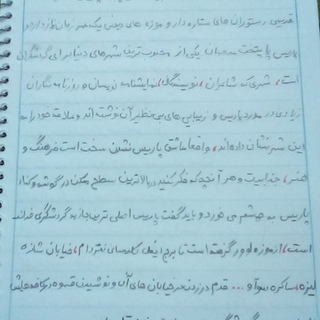 قدیمی رستوران های ستاره دار و موزه های دیدنی یک هنر زمان طراز دارد و
پاریس پایتخت همچنان یکی از محبوب ترین شهرهای دنیا برای گردشگران
است، شهری که شاعران، نویسندگان، نمایشنامه نویسان و روزنامه نگاران
زیادی در مورد پاریس و زیبایی های بی نظیر آن نوشته اند و علاقه خود را به
این شهر نشان داده اند، واقعا عاشق پاریس نشدن سخت است فرهنگ و
هنر، جذابیت و هر آنچه که فکر کنید در بالاترین سطح ممکن در گوشه و کنار
پاریس به چشم می خورد و باید گفت پاریس اصلی ترین جاذبه گردشگری فرانسه
است، از موزه لوور گرفته است تا برج ایفل کلیسای نتردام، خیابان شانزه
لیزه، ساکره کور و ... قدم در زدن در خیابان های آن و نوشیدن قهوه در کافه هایش